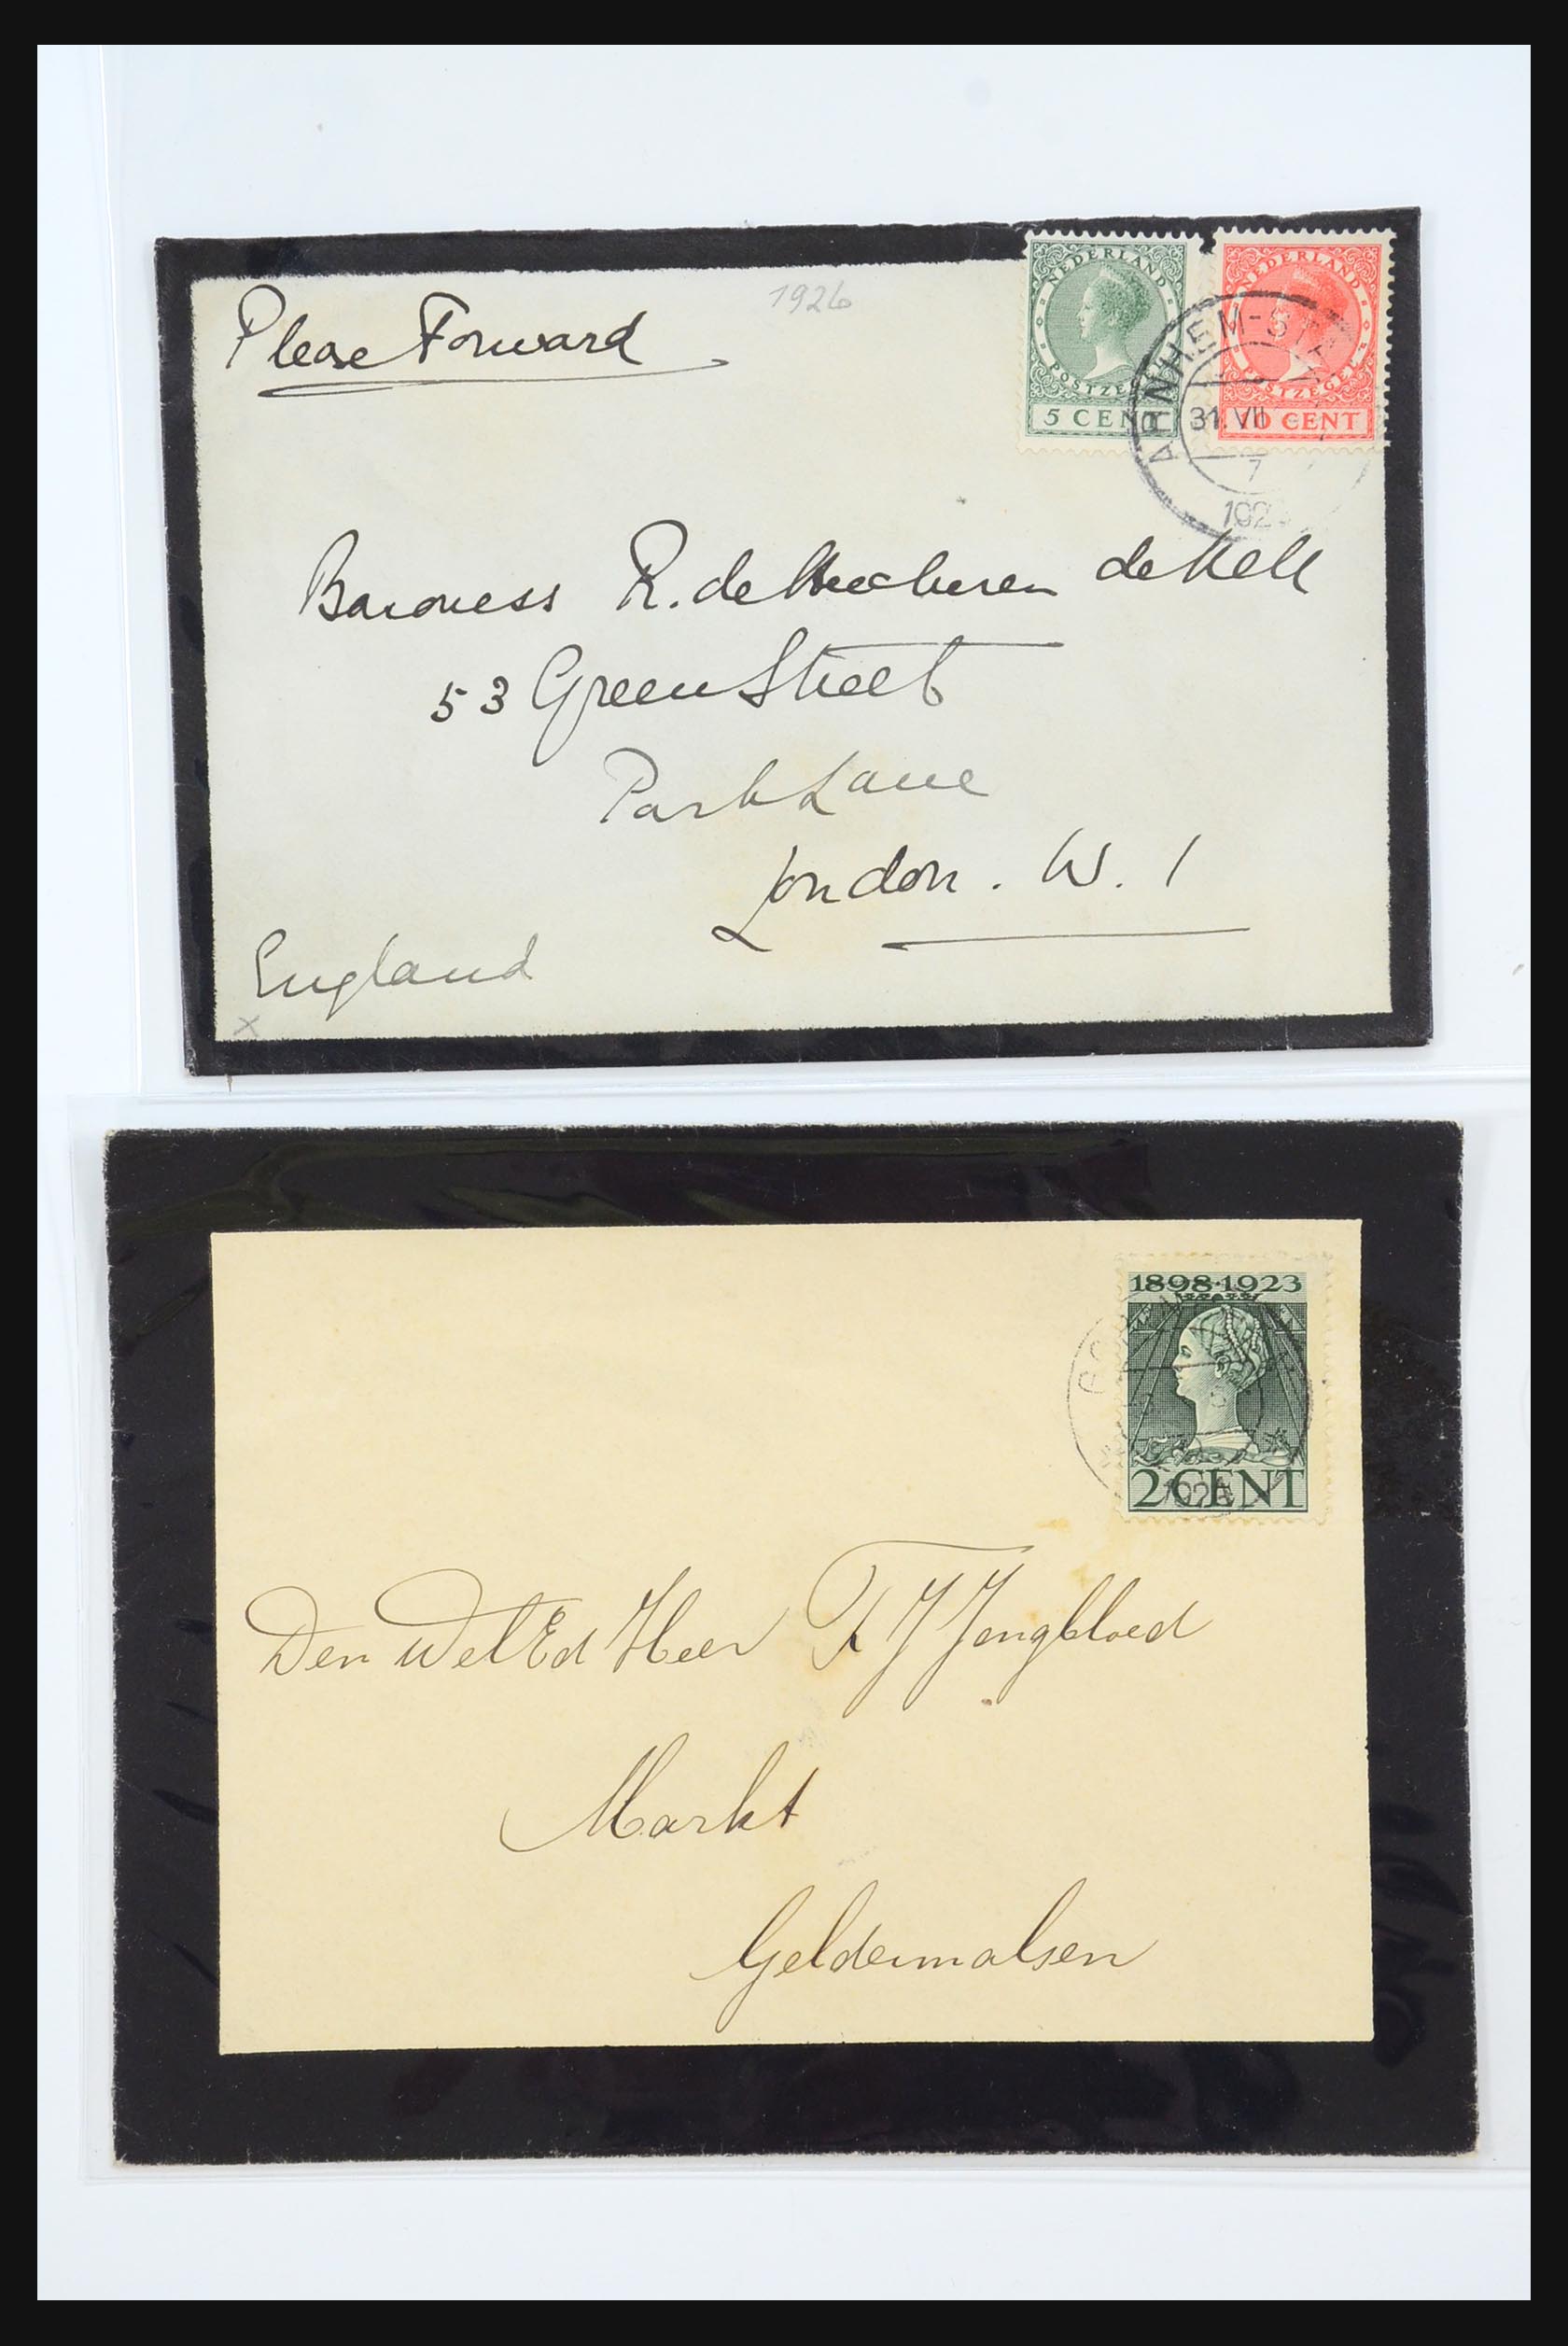 Please Forward
1926
NEDERLAND
POSTZEGEL
5 CENT
NEDERLAND
POSTZEGEL
10 CENT
ARNHEM-STA
31.VII
7
192
Baroness R. de Heeckeren de Kell
53 Green Street
Park Lane
London. W. 1
England
x
1898·1923
2 CENT
Den WelEd Heer F J Jongbloed
Markt
Geldermalsen